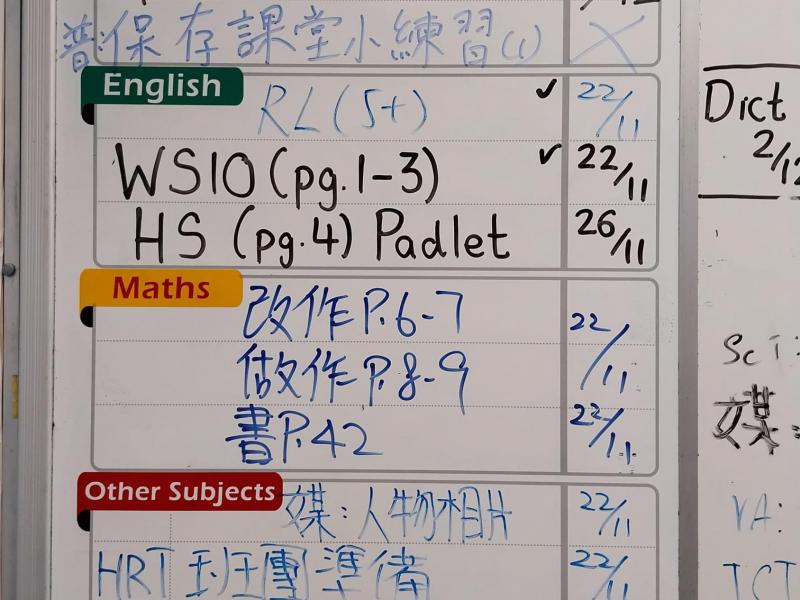 普:保存課堂小練習(1) ×
English
RL (5+) ✓ 22/11
WS10 (pg.1-3) ✓ 22/11
HS (pg.4) Padlet 26/11
Maths
改作P.6-7 22/11
做作P.8-9 22/11
書P.42 22/11
Other Subjects
媒:人物相片 22/11
HRT 班團準備 22/11
Dict
2/12
Sc
媒:
VA: